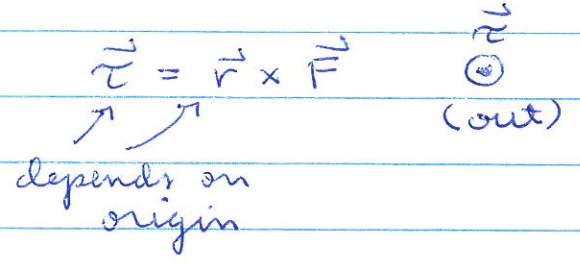 τ⃗ = r⃗ × F⃗
τ⃗
⊙
(out)
depends on
origin